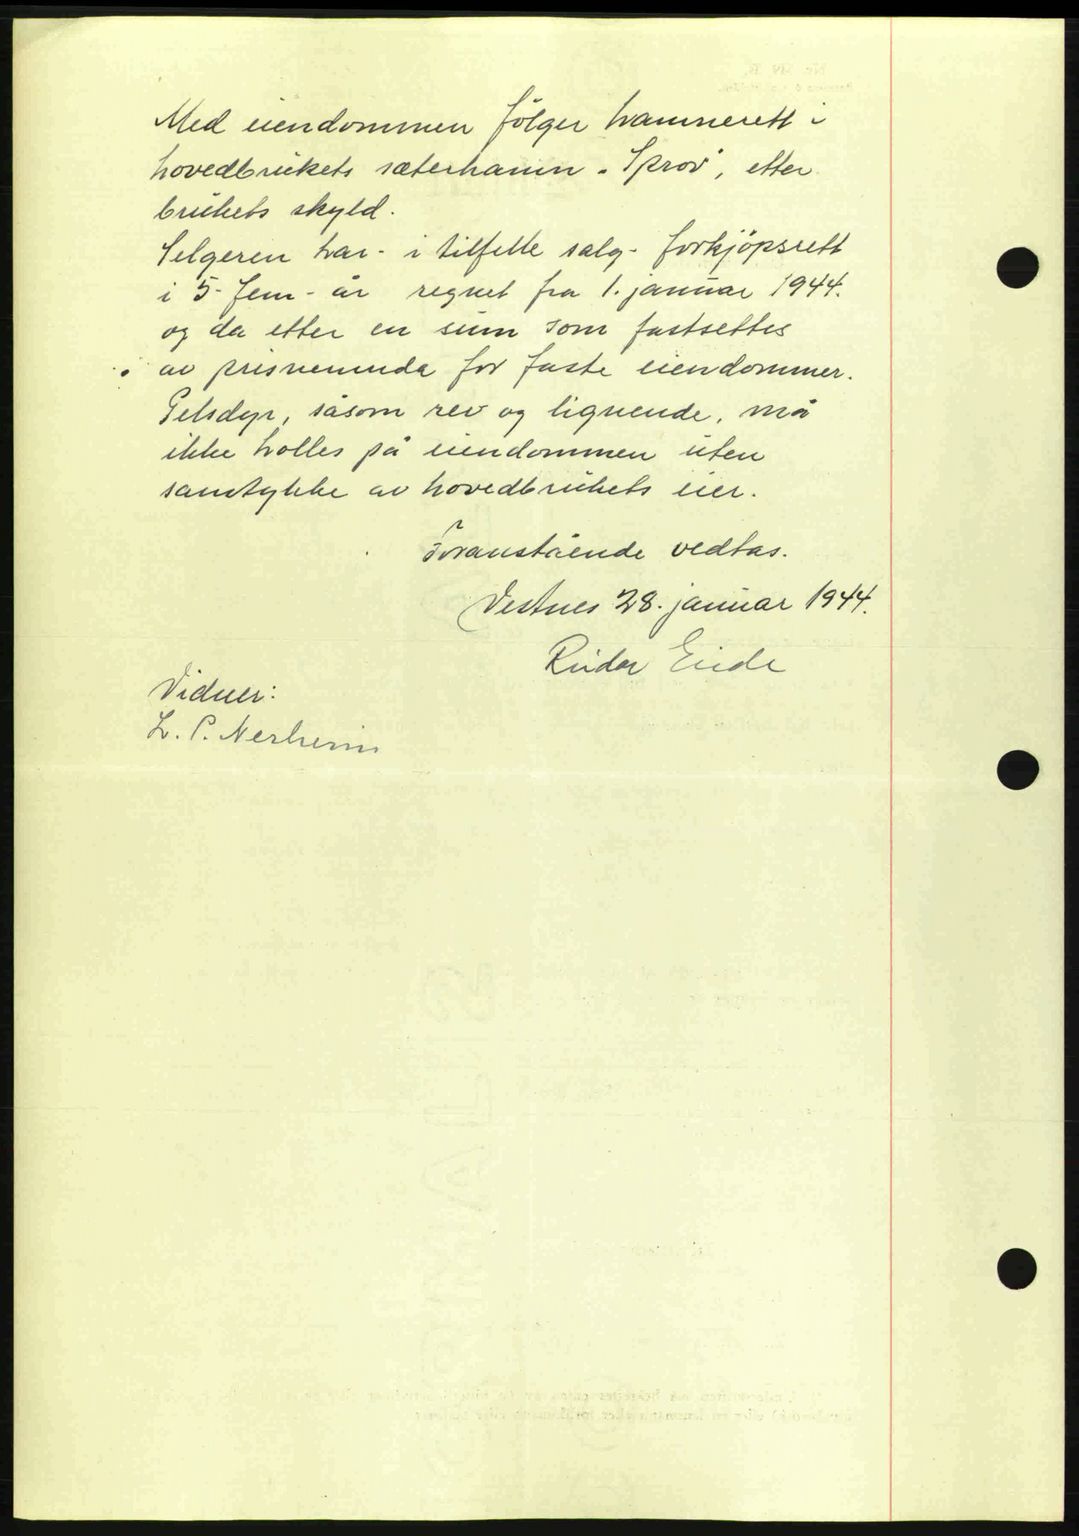 Med eiendommen følger hamnerett i
hovedbrukets sæterhamn "Sprov", etter
brukets skyld.
Selgeren har - i tilfelle salg - forkjöpsrett
i 5 - fem - år regnet fra 1. januar 1944.
og da etter en sum som fastsettes
av prisnemnda for faste eiendommer.
Pelsdyr, såsom rev og lignende, må
ikke holles på eiendommen uten
samtykke av hovedbrukets eier.
Foranstående vedtas.
Vestnes 28. januar 1944.
Reidar Eide
Vidner:
L. P. Nerheim